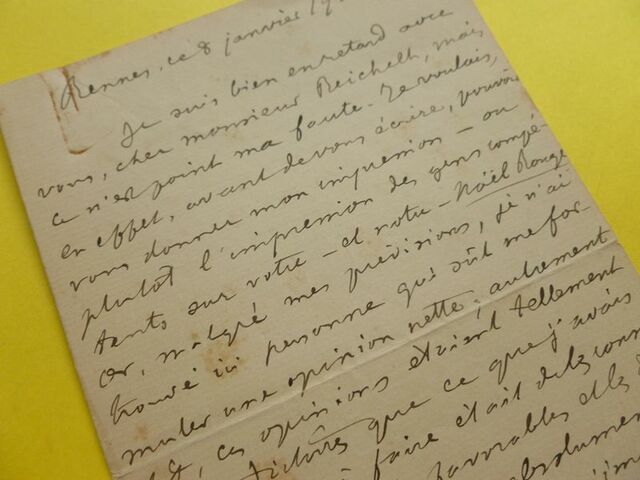 Rennes, ce 8 janvier 19
Je suis bien en retard avec
vous, cher monsieur Reichelt, mais
ce n'est point ma faute. Je voulais,
en effet, avant de vous écrire, pouvoir
vous donner mon impression – ou
plutôt l'impression des gens compé-
tents sur votre – et notre – Noël Rouge
or, malgré mes prévisions, je n'ai
trouvé ici personne qui sût me for-
muler une opinion nette; autrement
dit, ces opinions étaient tellement
que ce que j'avais
à faire était de les
favorables et les
absolument